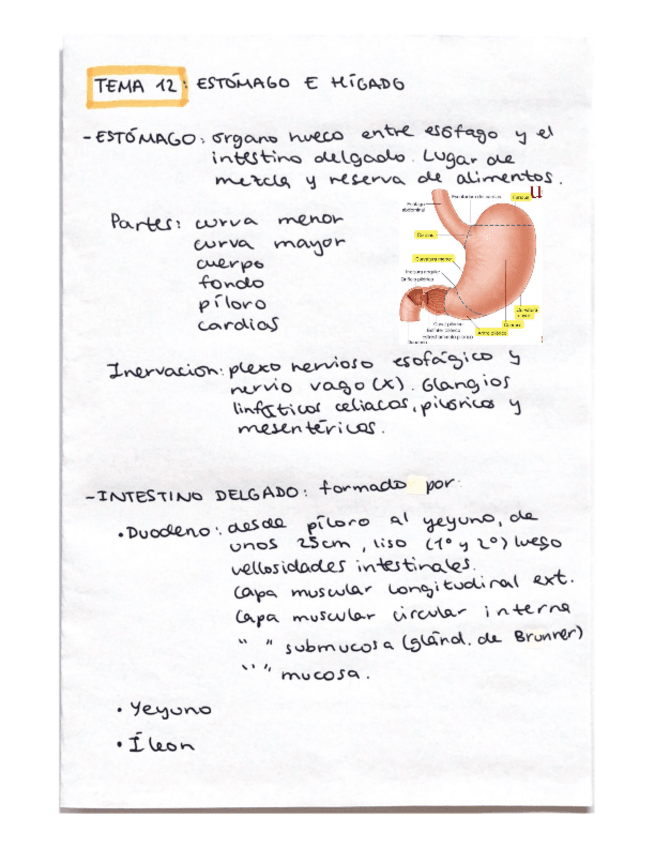 TEMA 12: ESTÓMAGO E HÍGADO
- ESTÓMAGO: órgano hueco entre esófago y el
intestino delgado. Lugar de
mezcla y reserva de alimentos.
Partes: curva menor
curva mayor
cuerpo
fondo
píloro
cardias
Esófago
abdominal
Fundus
u
Cardias
Curvatura menor
Incisura angular
Orificio pilórico
Curvatura
mayor
Cuerpo
Antro pilórico
Canal pilórico
Duodeno
Inervación: plexo nervioso esofágico y
nervio vago (X). Glangios
linfáticos celiacos, pilóricos y
mesentéricos.
- INTESTINO DELGADO: formado por:
• Duodeno: desde píloro al yeyuno, de
unos 25cm, liso (1º y 2º) luego
vellosidades intestinales.
Capa muscular longitudinal ext.
Capa muscular circular interna
" " submucosa (glánd. de Brunner)
" " mucosa.
• Yeyuno
• Íleon